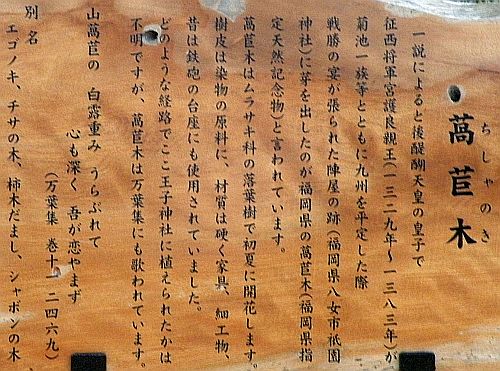 ちしゃのき
萵苣木
一説によると後醍醐天皇の皇子で
征西将軍宮護良親王(一三二九年～一三八三年)が
菊池一族等とともに九州を平定した際
戦勝の宴が張られた陣屋の跡(福岡県八女市祇園
神社)に芽を出したのが福岡県の萵苣木(福岡県指
定天然記念物)と言われています。
萵苣木はムラサキ科の落葉樹で初夏に開花します。
樹皮は染物の原料に、材質は硬く家具、細工物、
昔は鉄砲の台座にも使用されていました。
どのような経路でここ王子神社に植えられたかは
不明ですが、萵苣木は万葉集にも歌われています。
山萵苣の 白露重み うらぶれて
心も深く 吾が恋やまず
(万葉集 巻十一 二四六九)
別名
エゴノキ、チサの木、柿木だまし、シャボンの木